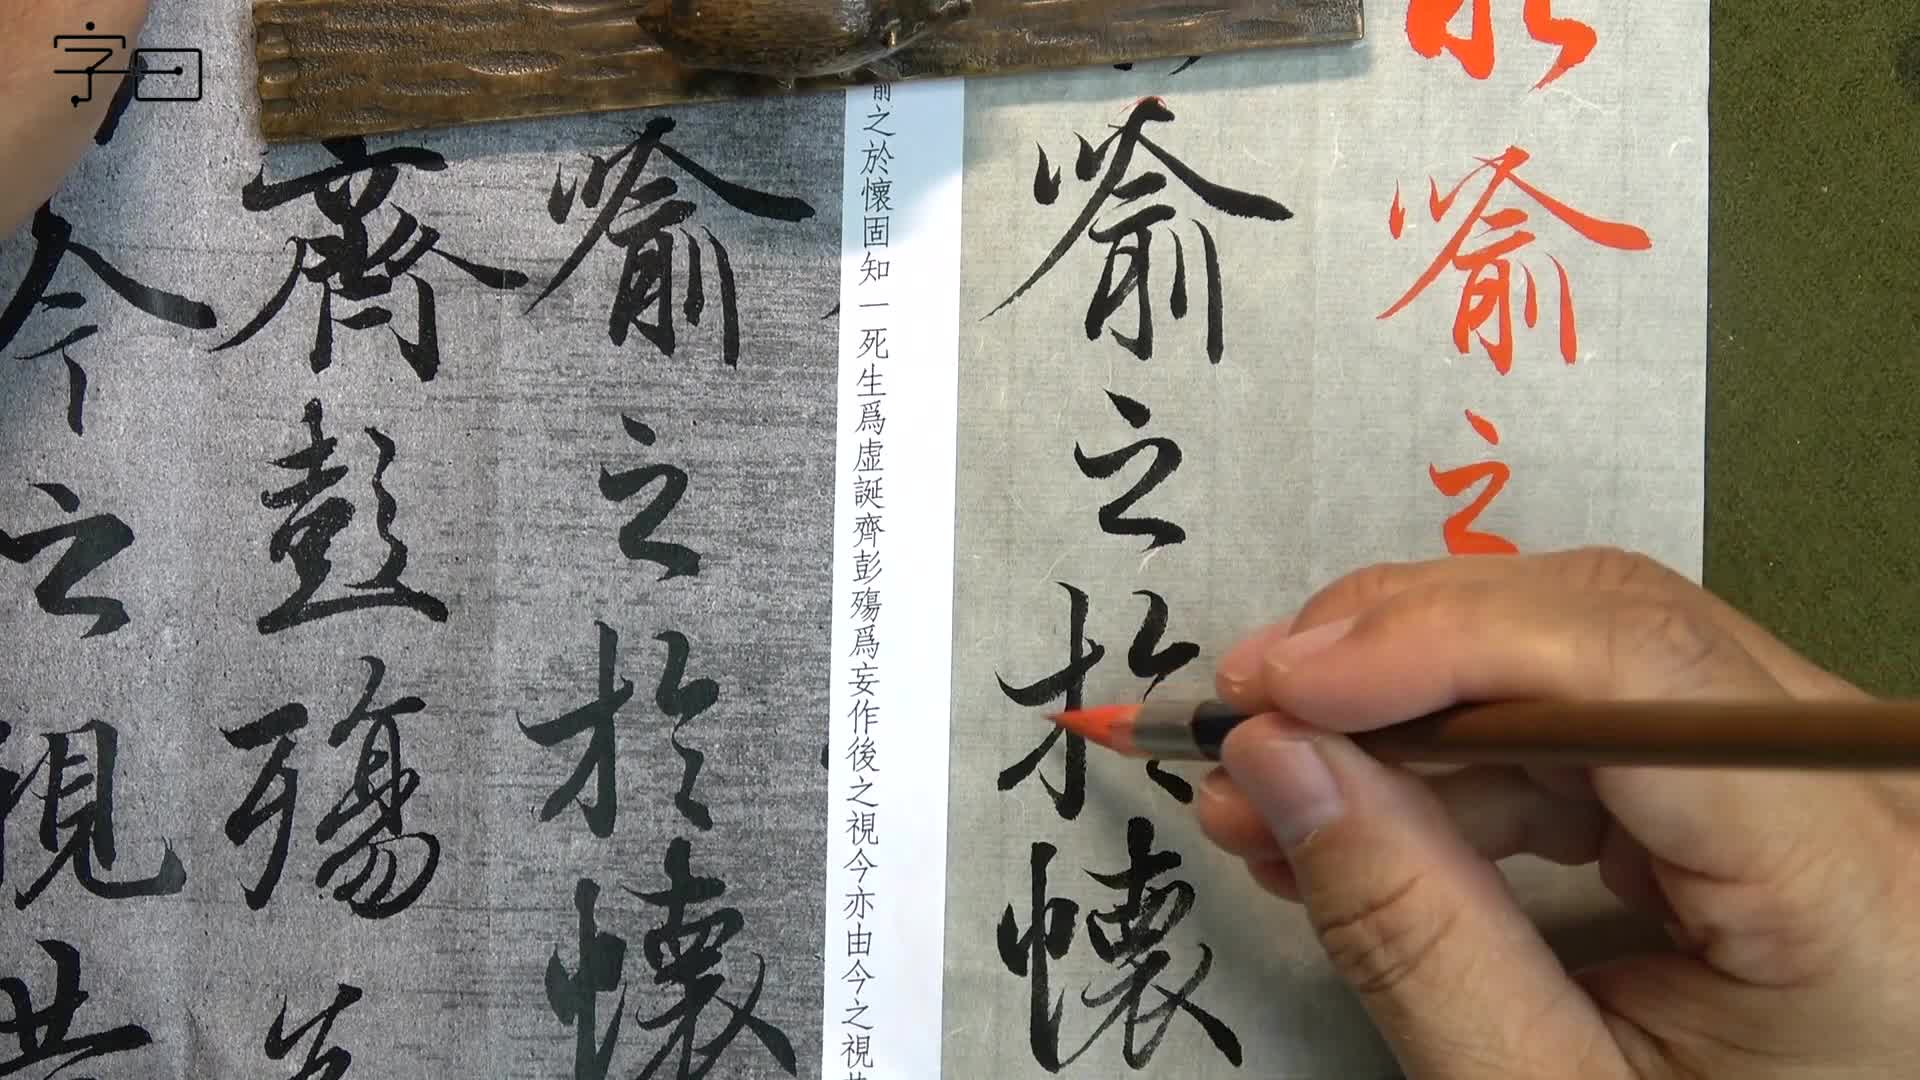 字曰
喻之
喻之於懷
之於懷固知一死生爲虛誕齊彭殤爲妄作後之視今亦由今之視
喻之於懷
齊彭殤
今之視